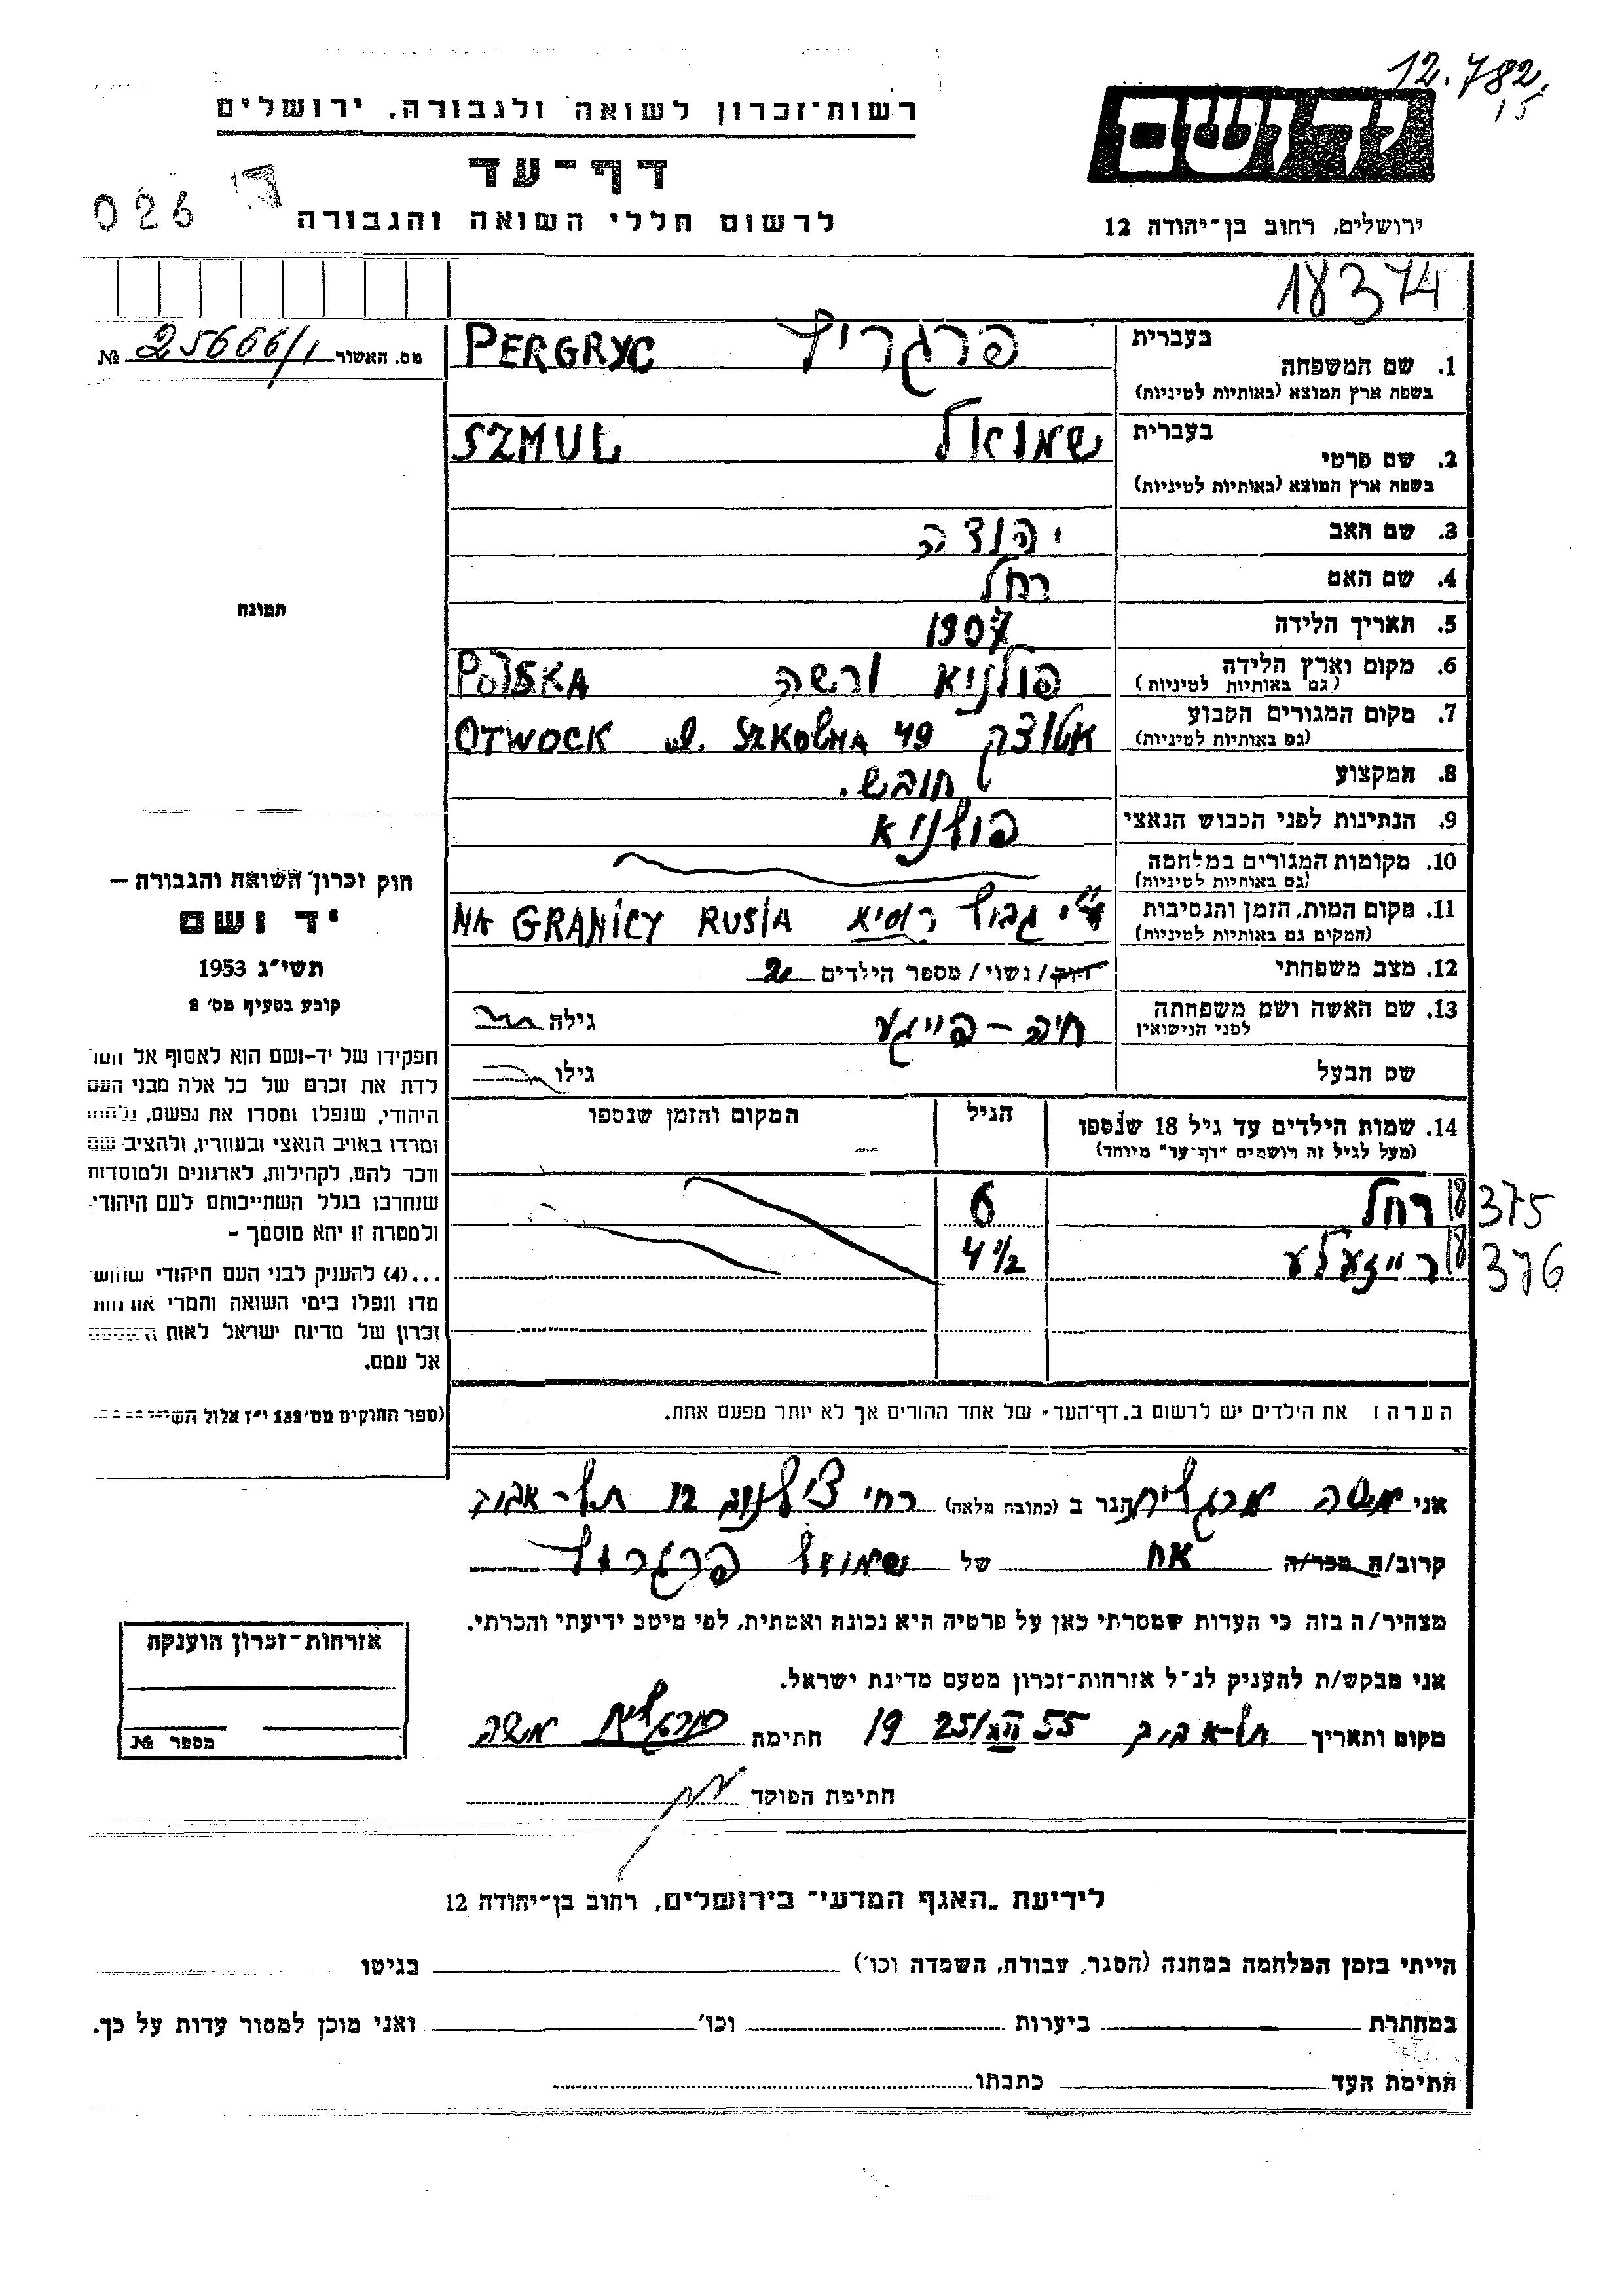 12.782.
15
רשות־זכרון לשואה ולגבורה, ירושלים
דף־עד
לרשום חללי השואה והגבורה
026
יד ושם
ירושלים, רחוב בן־יהודה 12
18374
מס. האשור 25666/1 №
1. שם המשפחה בעברית פרגריץ PERGRYC
בשפת ארץ המוצא (באותיות לטיניות)
2. שם פרטי בעברית שמואל SZMUL
בשפת ארץ המוצא (באותיות לטיניות)
3. שם האב יהודה
4. שם האם רחל
5. תאריך הלידה 1907
6. מקום וארץ הלידה פולניא ורשה POLSKA
(גם באותיות לטיניות)
7. מקום המגורים הקבוע אטווצק OTWOCK ul. SZKOLNA 49
(גם באותיות לטיניות)
8. המקצוע חובש.
9. הנתינות לפני הכבוש הנאצי פולניא
10. מקומות המגורים במלחמה
(גם באותיות לטיניות)
11. מקום המות, הזמן והנסיבות ע"י גבול רוסיא NA GRANICY RUSIA
(המקום גם באותיות לטיניות)
12. מצב משפחתי רוק/נשוי/מספר הילדים 2
13. שם האשה ושם משפחתה חיה – פייגע גילה
לפני הנישואין
שם הבעל גילו
14. שמות הילדים עד גיל 18 שנספו הגיל המקום והזמן שנספו
(מעל לגיל זה רושמים "דף־עד" מיוחד)
רחל 6 18375
רייזעלע 4 1/2 18376
הערה: את הילדים יש לרשום ב„דף־העד" של אחד ההורים אך לא יותר מפעם אחת.
תמונה
חוק זכרון השואה והגבורה –
יד ושם
תשי"ג 1953
קובע בסעיף מס' 8
תפקידו של יד־ושם הוא לאסוף אל המו
לדת את זכרם של כל אלה מבני העם
היהודי, שנפלו ומסרו את נפשם, נלחמו
ומרדו באויב הנאצי ובעוזריו, ולהציב שם
וזכר להם, לקהילות, לארגונים ולמוסדות
שנחרבו בגלל השתייכותם לעם היהודי;
ולמטרה זו יהא מוסמך –
...(4) להעניק לבני העם היהודי שהוש
מדו ונפלו בימי השואה והמרי אזרחות
זכרון של מדינת ישראל לאות האספם
אל עמם.
(ספר החוקים מס' 132 י"ז אלול
אני משה מרגלית הגר ב (כתובת מלאה) רח' 12 תל־אביב
קרוב/ה מכר/ה אח של שמואל פרגריץ
מצהיר/ה בזה כי העדות שמסרתי כאן על פרטיה היא נכונה ואמתית, לפי מיטב ידיעתי והכרתי.
אני מבקש/ת להעניק לנ"ל אזרחות־זכרון מטעם מדינת ישראל.
מקום ותאריך תל־אביב 25/ 55 19 חתימה מרגלית משה
חתימת הפוקד
אזרחות־זכרון הוענקה
מספר №
לידיעת „האגף המדעי" בירושלים, רחוב בן־יהודה 12
הייתי בזמן המלחמה במחנה (הסגר, עבודה, השמדה וכו') בגיטו
במחתרת ביערות וכו' ואני מוכן למסור עדות על כך.
חתימת העד כתבתו